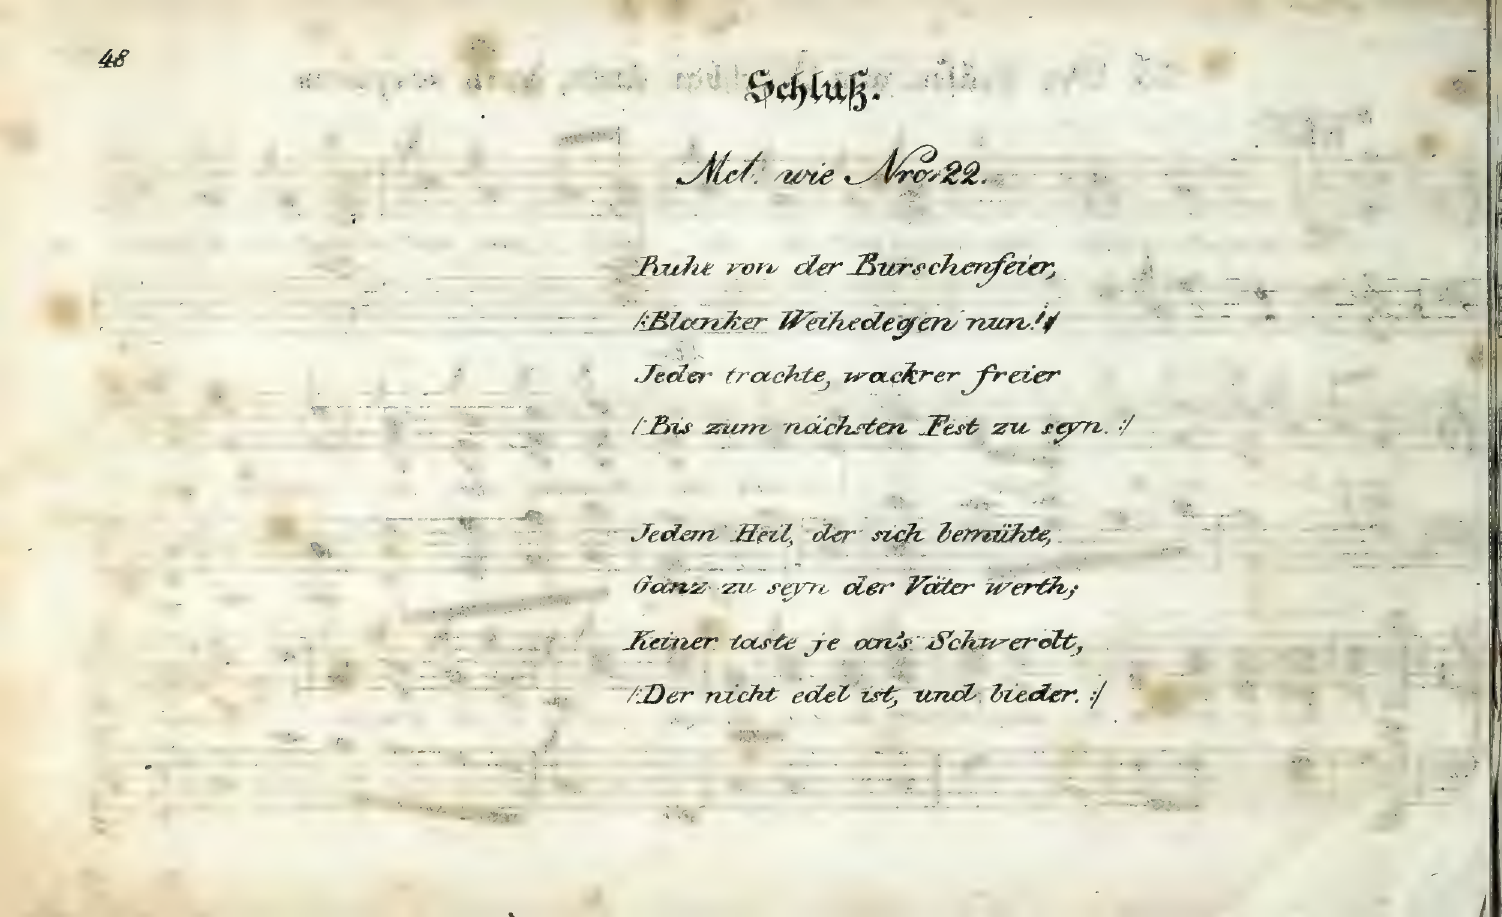 48
Schluß.
Mel. wie Nro. 22.
Ruhe von der Burschenfeier,
/:Blanker Weihedegen nun!:/
Jeder trachte, wackrer freier
/:Bis zum nächsten Fest zu seyn. :/
Jedem Heil, der sich bemühte,
Ganz zu seyn der Väter werth;
Keiner taste je an's Schwerdt,
/:Der nicht edel ist, und bieder. :/